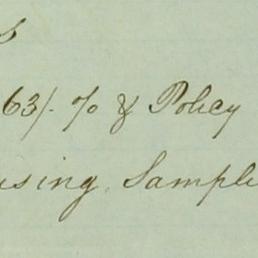 s
63/- % & Policy
using Sample